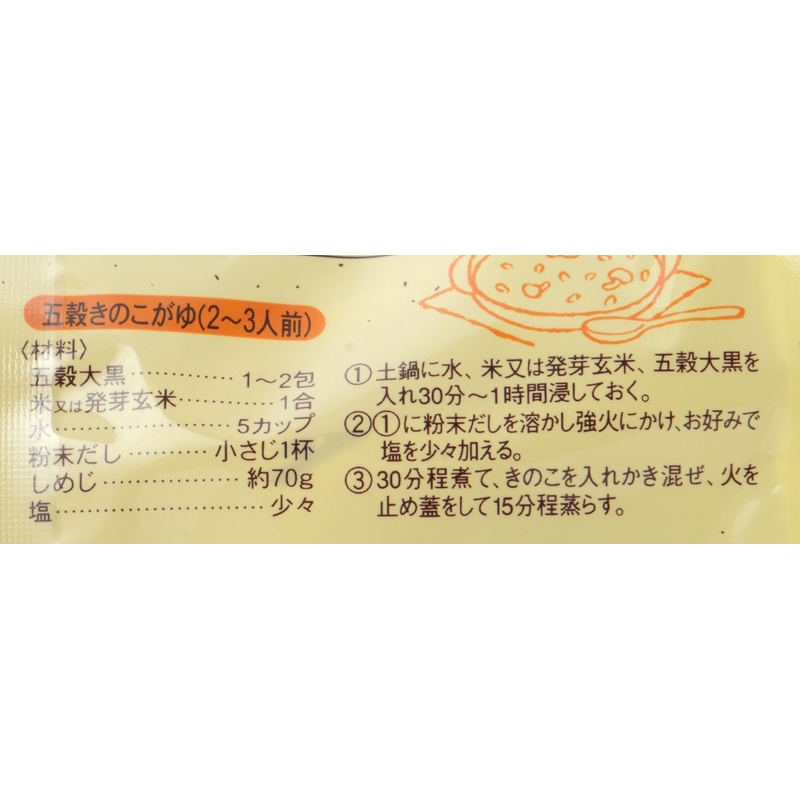 五穀きのこがゆ(2～3人前)
〈材料〉
五穀大黒············1～2包
米又は発芽玄米···········1合
水····················5カップ
粉末だし··········小さじ1杯
しめじ················約70g
塩························少々
①土鍋に水、米又は発芽玄米、五穀大黒を
入れ30分～1時間浸しておく。
②①に粉末だしを溶かし強火にかけ、お好みで
塩を少々加える。
③30分程煮て、きのこを入れかき混ぜ、火を
止め蓋をして15分程蒸らす。